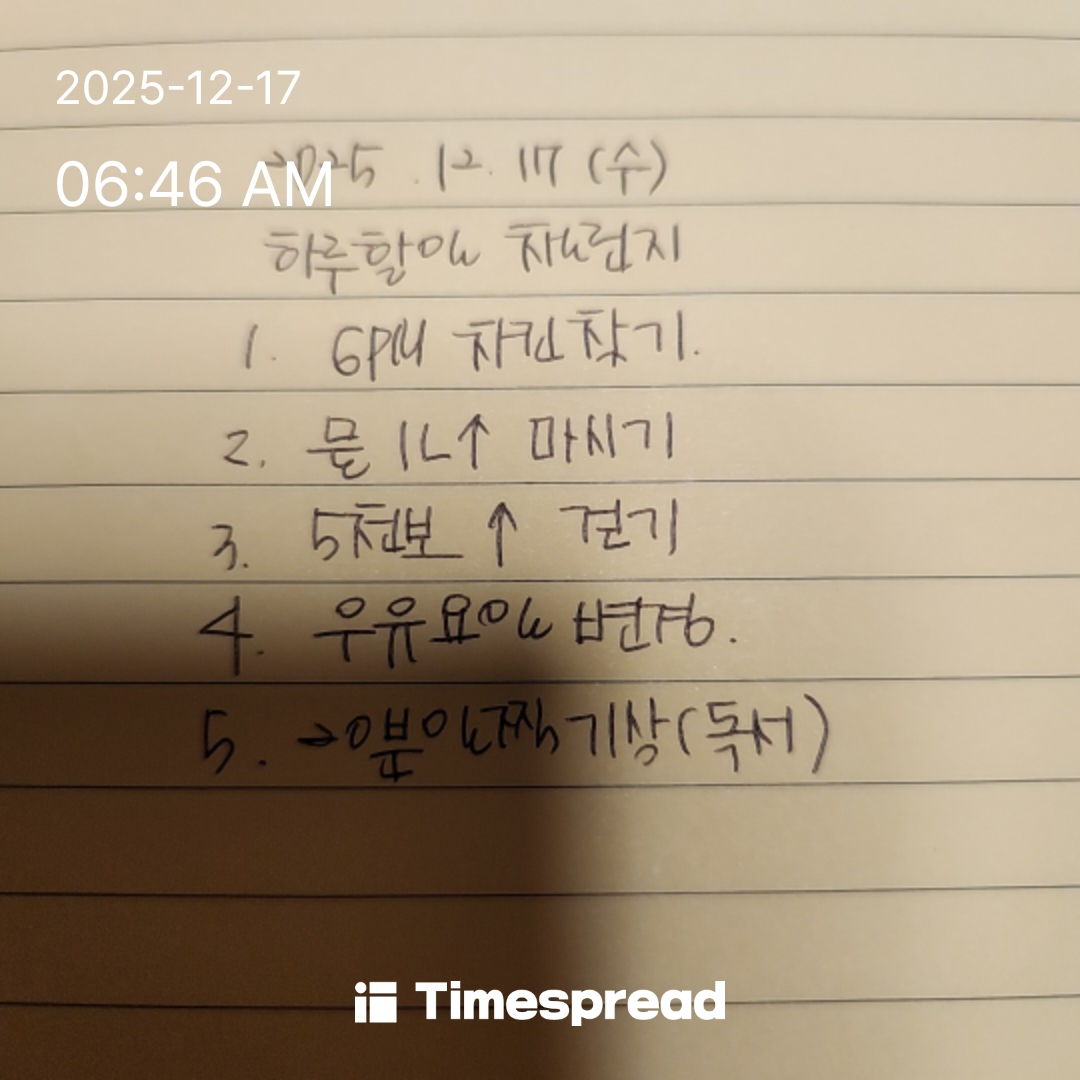 2025-12-17
06:46 AM
2025. 12. 17 (수)
하루할일 챌린지
1. 6PM 치킨찾기.
2. 물 1L↑ 마시기
3. 5천보 ↑ 걷기
4. 우유요일 변경.
5. 20분일찍기상(독서)
Timespread